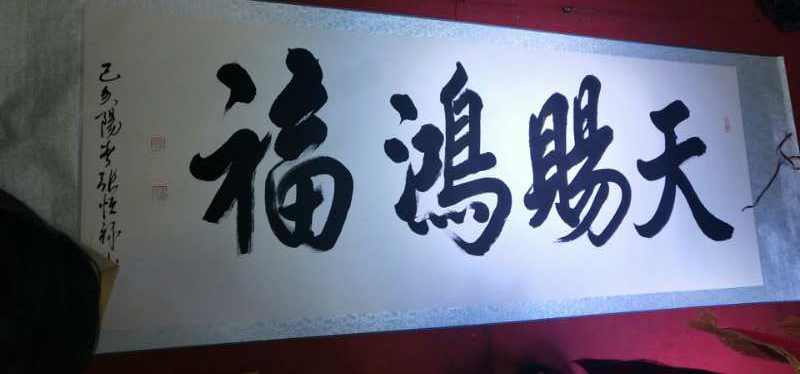 天賜鴻福
己亥陽春張恒祿